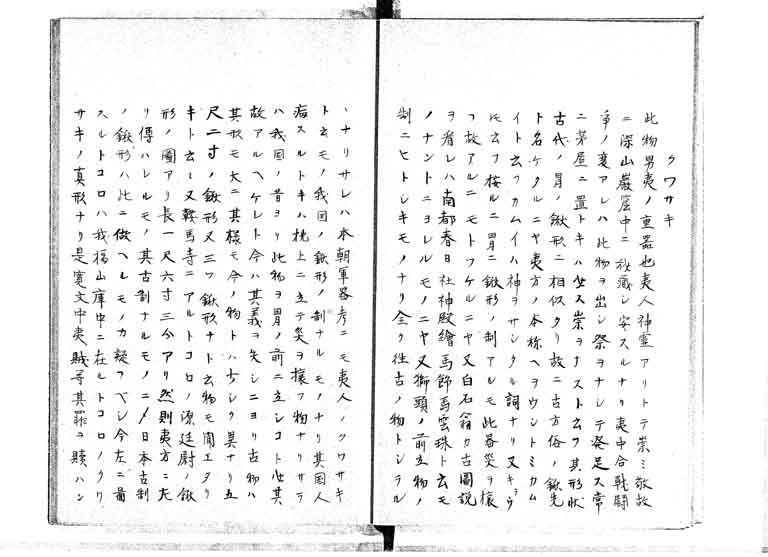 クワサキ
此物男夷ノ重器也夷人神霊アリトテ崇ミ敬故
ニ深山巌窟中ニ秘蔵シ安スルナリ夷中合戦闘
争ノ変アレハ此物ヲ出シ祭ヲナシテ発足ス常
ニ茅屋ニ置トキハ必ス祟ヲナストムフ其形状
古代ノ胃ノ鍬形ニ相似タリ故ニ古方俗ノ鍬先
ト名ケタルニヤ夷方ノ本称ヘヲウシトミカム
イト云フカムイハ神ヲサシタル詞ナリ又キラウ
ヒ云フ按ルニ胃ニ鍬形ノ制アルモ此器災ヲ攘
フ故アルニモトツケルニヤ又白石翁カ古圖説
ヲ看レハ南都春日社神殿繪馬飾馬雲珠ト云モ
ノナントニヨレルモノニヤ又獅頭ノ前立物ノ
制ニヒトシキモノナリ全ク往古ノ物トシラル
ヽナリサレハ本朝軍器考ニモ夷人ノクワサキ
ト云モノ我国ノ鍬形ノ制ナルモノナリ其国人
病スルトキハ枕上ニ立テ災ヲ攘フ物ナリサラ
ハ我国ノ昔ヨリ此物ヲ胃ノ前ニ立シコト必其
故アルヘケレト今ハ其義ヲ失シニヨリ古物ハ
其形モ大ニ其様モ今ノ物トハ少シク異ナリ五
尺二寸ノ鍬形又三ツ鍬形ナト云物モ聞エタリ
キト云シ又鞍馬寺ニアルトコロノ源廷尉ノ鍬
形ノ圖アリ長一尺六寸三分アリ然則夷方ニ左
リ傳ハレルモノ其古制ナルモノニメ日本古制
ノ鍬形ハ此ニ倣ヘルモノカ疑フヘシ今左ニ圖
スルトコロハ我福山庫中ニ在ルトコロノクワ
サキノ真形ナリ是寛文中夷賊等其罪ヲ贖ハン